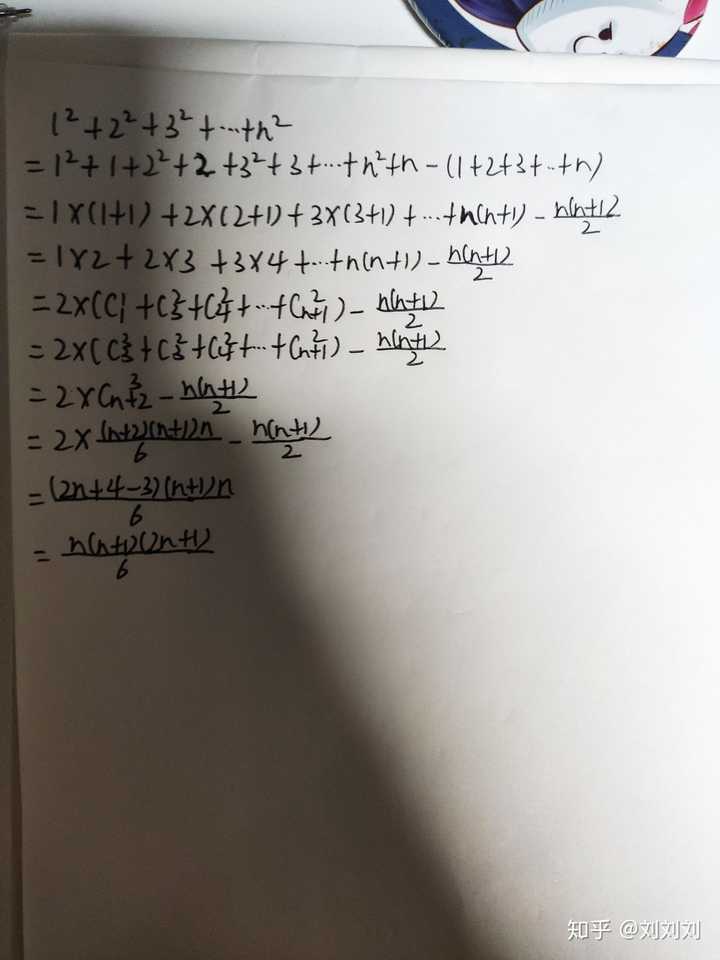 1²+2²+3²+…+n²
=1²+1+2²+2+3²+3+…+n²+n-(1+2+3+…+n)
=1×(1+1)+2×(2+1)+3×(3+1)+…+n(n+1)-n(n+1)/2
=1×2+2×3+3×4+…+n(n+1)-n(n+1)/2
=2×(C₂²+C₃²+C₄²+…+Cₙ₊₁²)-n(n+1)/2
=2×(C₃³+C₃²+C₄²+…+Cₙ₊₁²)-n(n+1)/2
=2×Cₙ₊₂³-n(n+1)/2
=2×(n+2)(n+1)n/6-n(n+1)/2
=(2n+4-3)(n+1)n/6
=n(n+1)(2n+1)/6
知乎 @刘刘刘